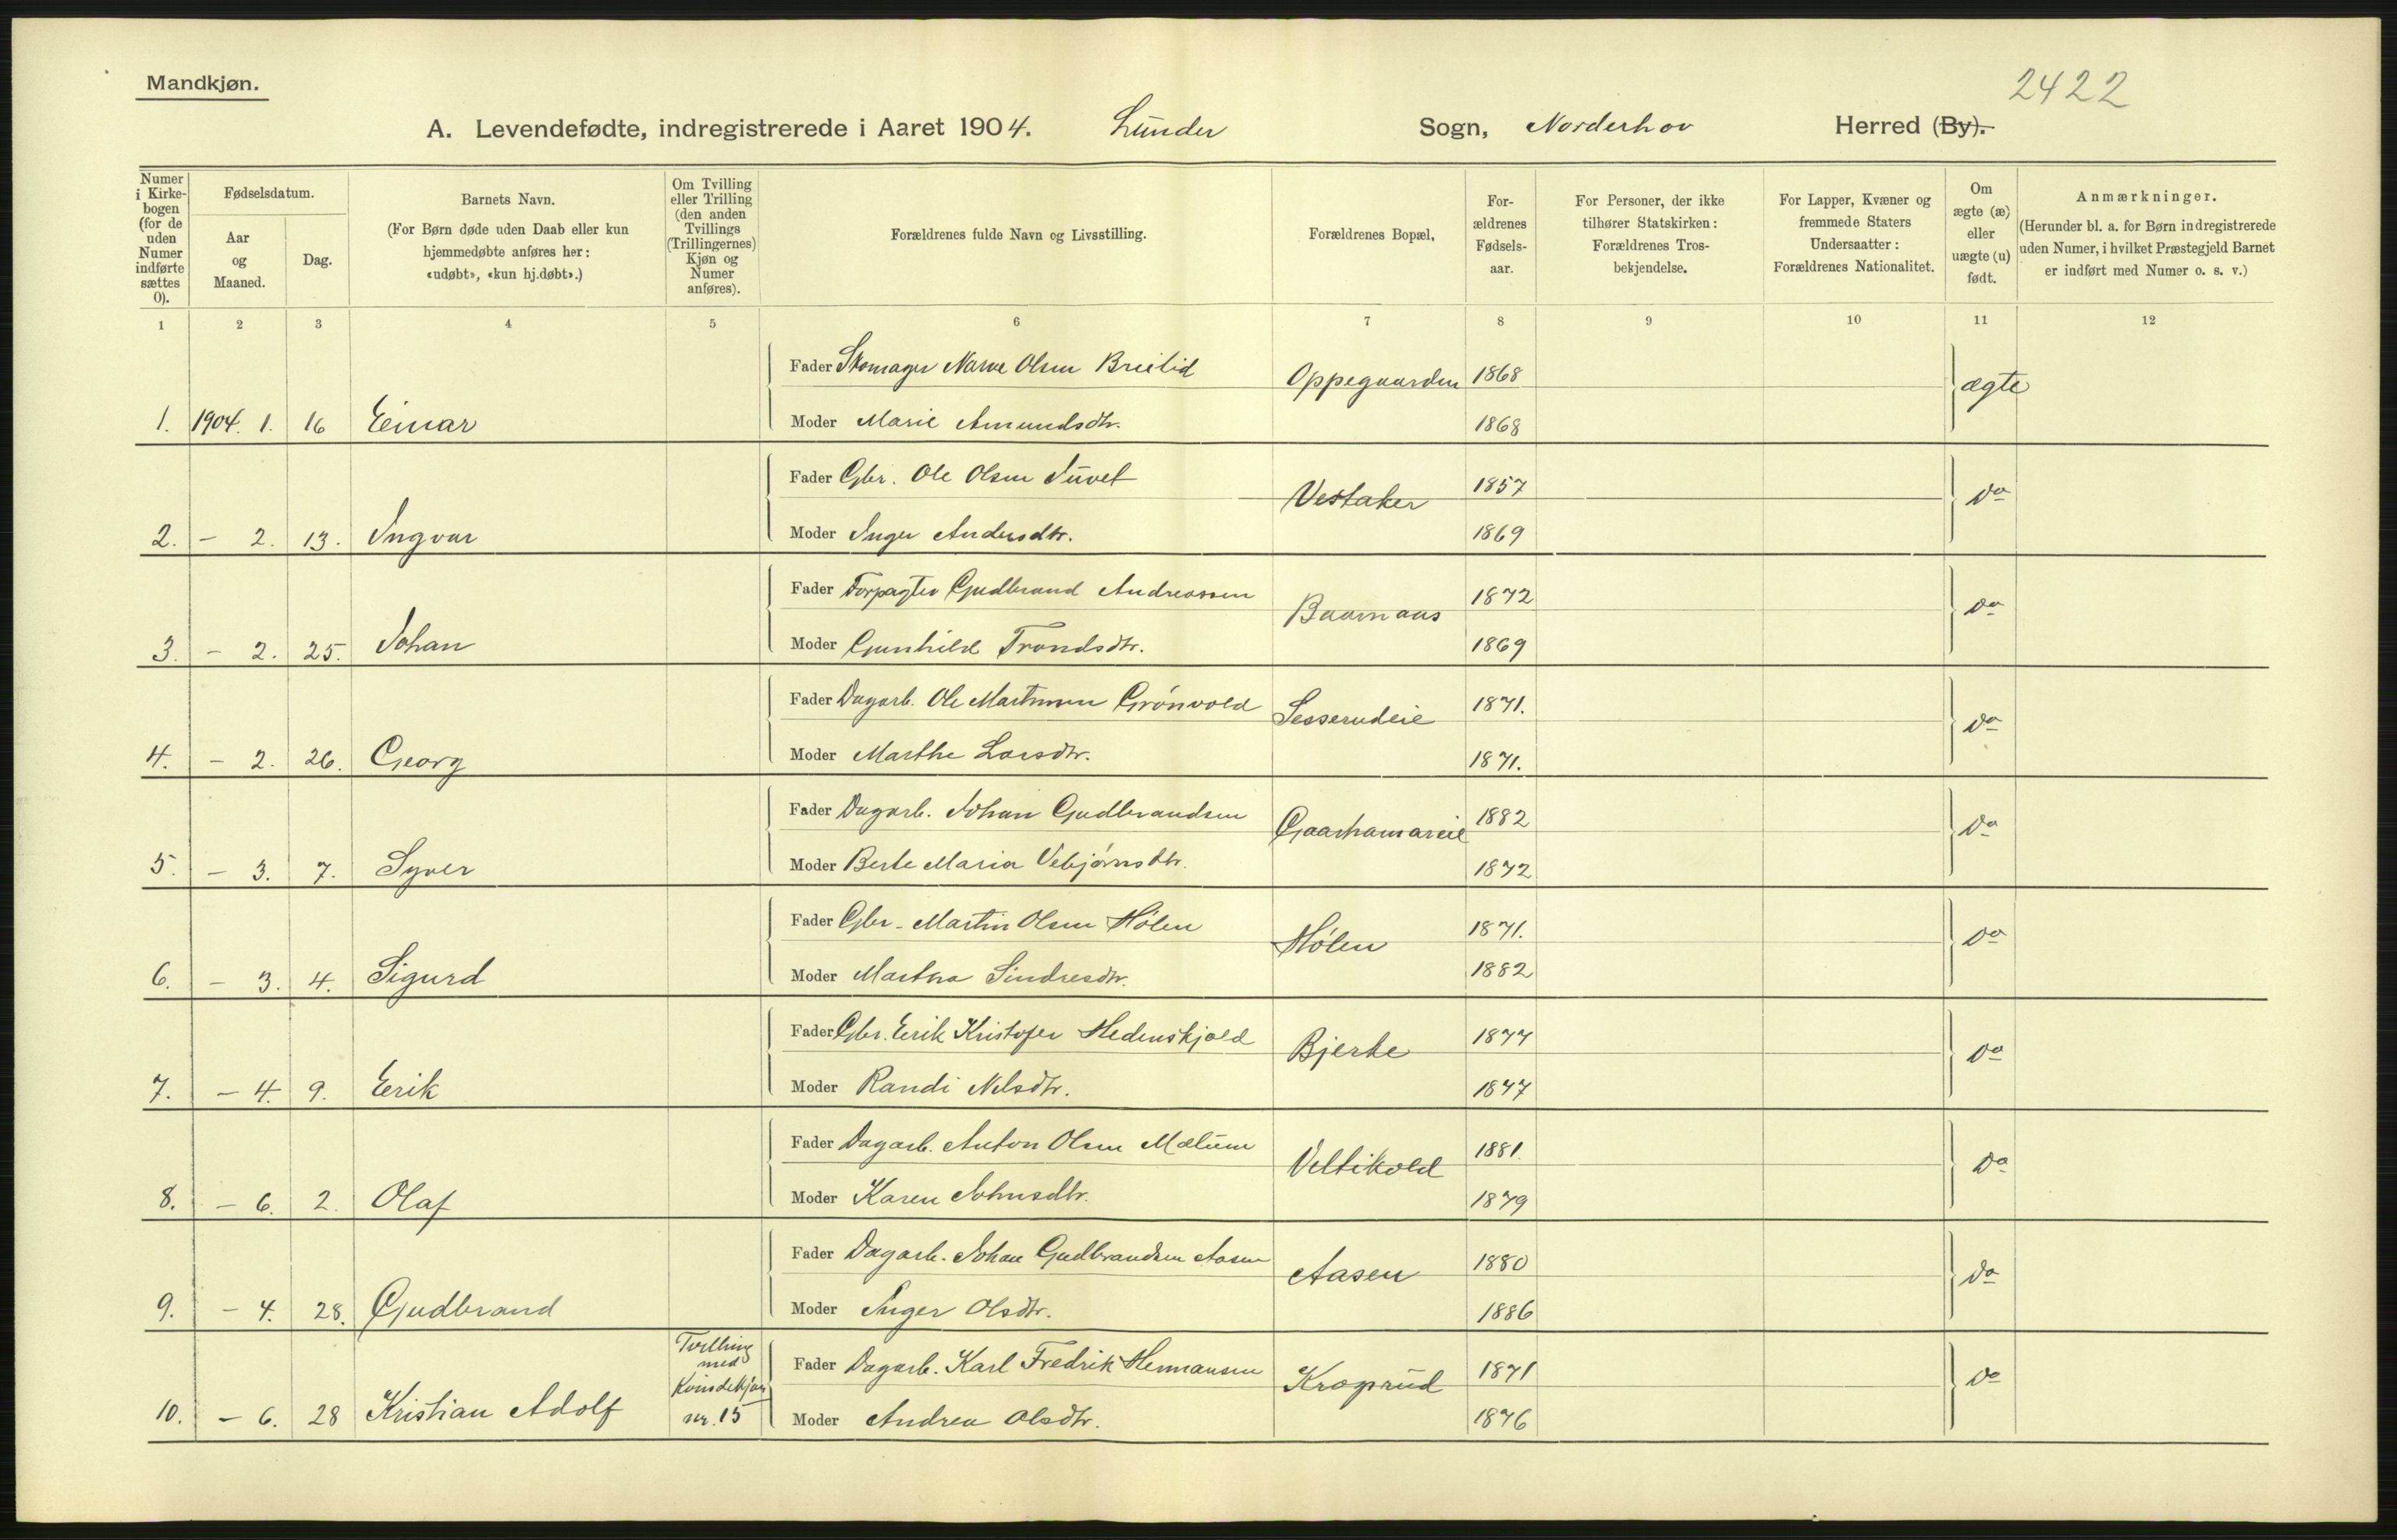 Mandkjøn.
2422
A. Levendefødte, indregistrerede i Aaret 1904. Lunder Sogn, Norderhov Herred (By).
Numer i Kirkebogen (for de uden Numer indførte sættes 0).
Fødselsdatum.
Aar og Maaned.
Dag.
Barnets Navn.
(For Børn døde uden Daab eller kun hjemmedøbte anføres her: «udøbt», «kun hj.døbt».)
Om Tvilling eller Trilling (den anden Tvillings (Trillingernes) Kjøn og Numer anføres).
Forældrenes fulde Navn og Livsstilling.
Forældrenes Bopæl,
Forældrenes Fødselsaar.
For Personer, der ikke tilhører Statskirken: Forældrenes Trosbekjendelse.
For Lapper, Kvæner og fremmede Staters Undersaatter: Forældrenes Nationalitet.
Om ægte (æ) eller uægte (u) født.
Anmærkninger.
(Herunder bl. a. for Børn indregistrerede uden Numer, i hvilket Præstegjeld Barnet er indført med Numer o. s. v.)
1 2 3 4 5 6 7 8 9 10 11 12
Fader Skomager Narve Olsen Breilid Oppegaarden 1868 ægte
1. 1904. 1. 16 Einar Moder Marie Amundsdtr. 1868
Fader Gbr. Ole Olsen Juvet Vestaker 1857 do
2. - 2. 13. Ingvar Moder Inger Andersdtr. 1869
Fader Forpagter Gudbrand Andreassen Baarnaas 1872 do
3. - 2. 25. Johan Moder Gunhild Trondsdtr. 1869
Fader Dagarb. Ole Martinsen Grønvold Sesserudeie 1871. do
4. - 2. 26. Georg Moder Marthe Larsdtr. 1871.
Fader Dagarb. Johan Gudbrandsen Gaarhamareie 1882 do
5. - 3. 7. Syver Moder Berte Maria Vebjørnsdtr. 1872
Fader Gbr. Martin Olsen Hólen Hólen 1871. do
6. - 3. 4. Sigurd Moder Martha Sindresdtr. 1882
Fader Gbr. Erik Kristofer Hedenskjold Bjerke 1877 do
7. - 4. 9. Erik Moder Randi Nilsdtr. 1877
Fader Dagarb. Anton Olsen Mælum Veltikold 1881. do
8. - 6. 2. Olaf Moder Karen Johnsdtr. 1879
Fader Dagarb. Johan Gudbrandsen Aasen Aasen 1880 do
9. - 4. 28. Gudbrand Moder Inger Olsdtr. 1886
Tvilling med Kvindekjøn nr. 15
Fader Dagarb. Karl Fredrik Hermansen Kroprud 1871 do
10. - 6. 28 Kristian Adolf Moder Andrea Olsdtr. 1876